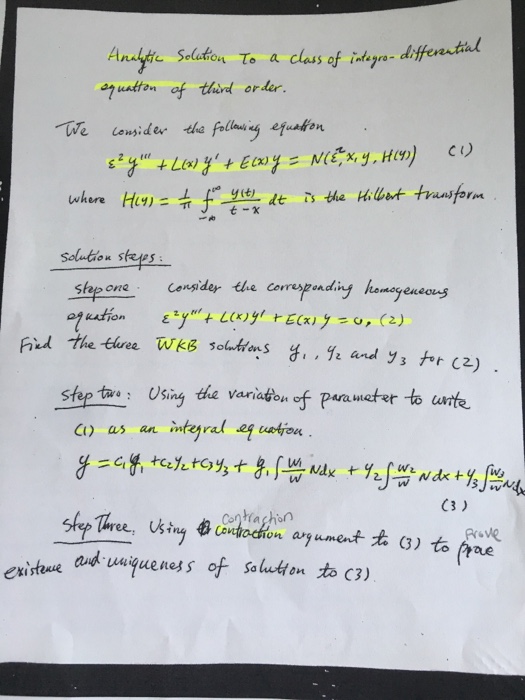 Analytic Solution To a class of integro-differential
equation of third order.
We consider the following equation
ε²y''' + L(x)y' + E(x)y = N(ε², x, y, H(y)) (1)
where H(y) = 1/π ∫_{-∞}^{∞} y(t)/(t-x) dt is the Hilbert transform.
Solution steps:
Step one. Consider the corresponding homogeneous
equation ε²y''' + L(x)y' + E(x)y = 0, (2)
Find the three WKB solutions y₁, y₂ and y₃ for (2).
Step two: Using the variation of parameter to write
(1) as an integral equation.
y = c₁y₁ + c₂y₂ + c₃y₃ + y₁∫ W₁/W N dx + y₂∫ W₂/W N dx + y₃∫ W₃/W N dx
(3)
contraction
Step Three. Using contraction argument to (3) to prove
existence and uniqueness of solution to (3).